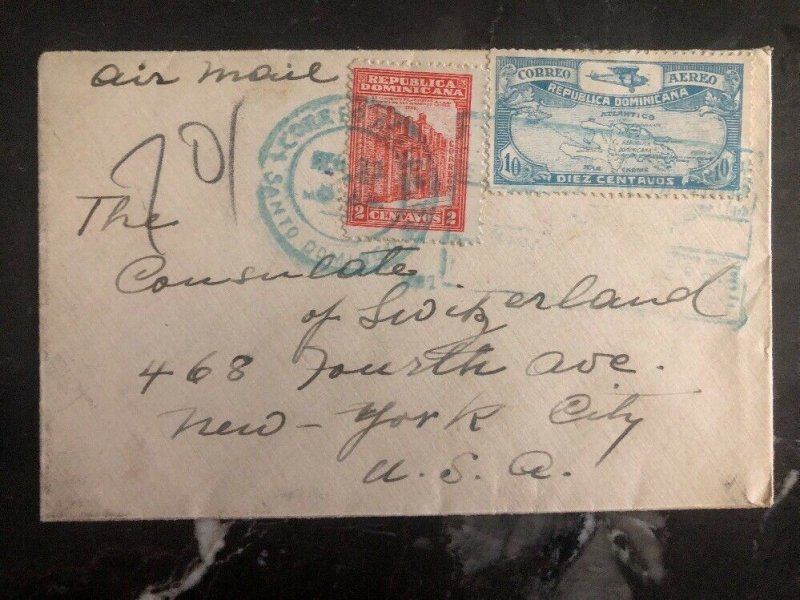 air mail
REPUBLICA
DOMINICANA
CORREOS
2 CENTAVOS 2
CORREO AEREO
REPUBLICA DOMINICANA
ATLANTICO
MAR CARIBE
10 10
DIEZ CENTAVOS
SANTO DOM
701
The
Consulate
of Switzerland
468 Fourth ave.
New-York City
U.S.A.